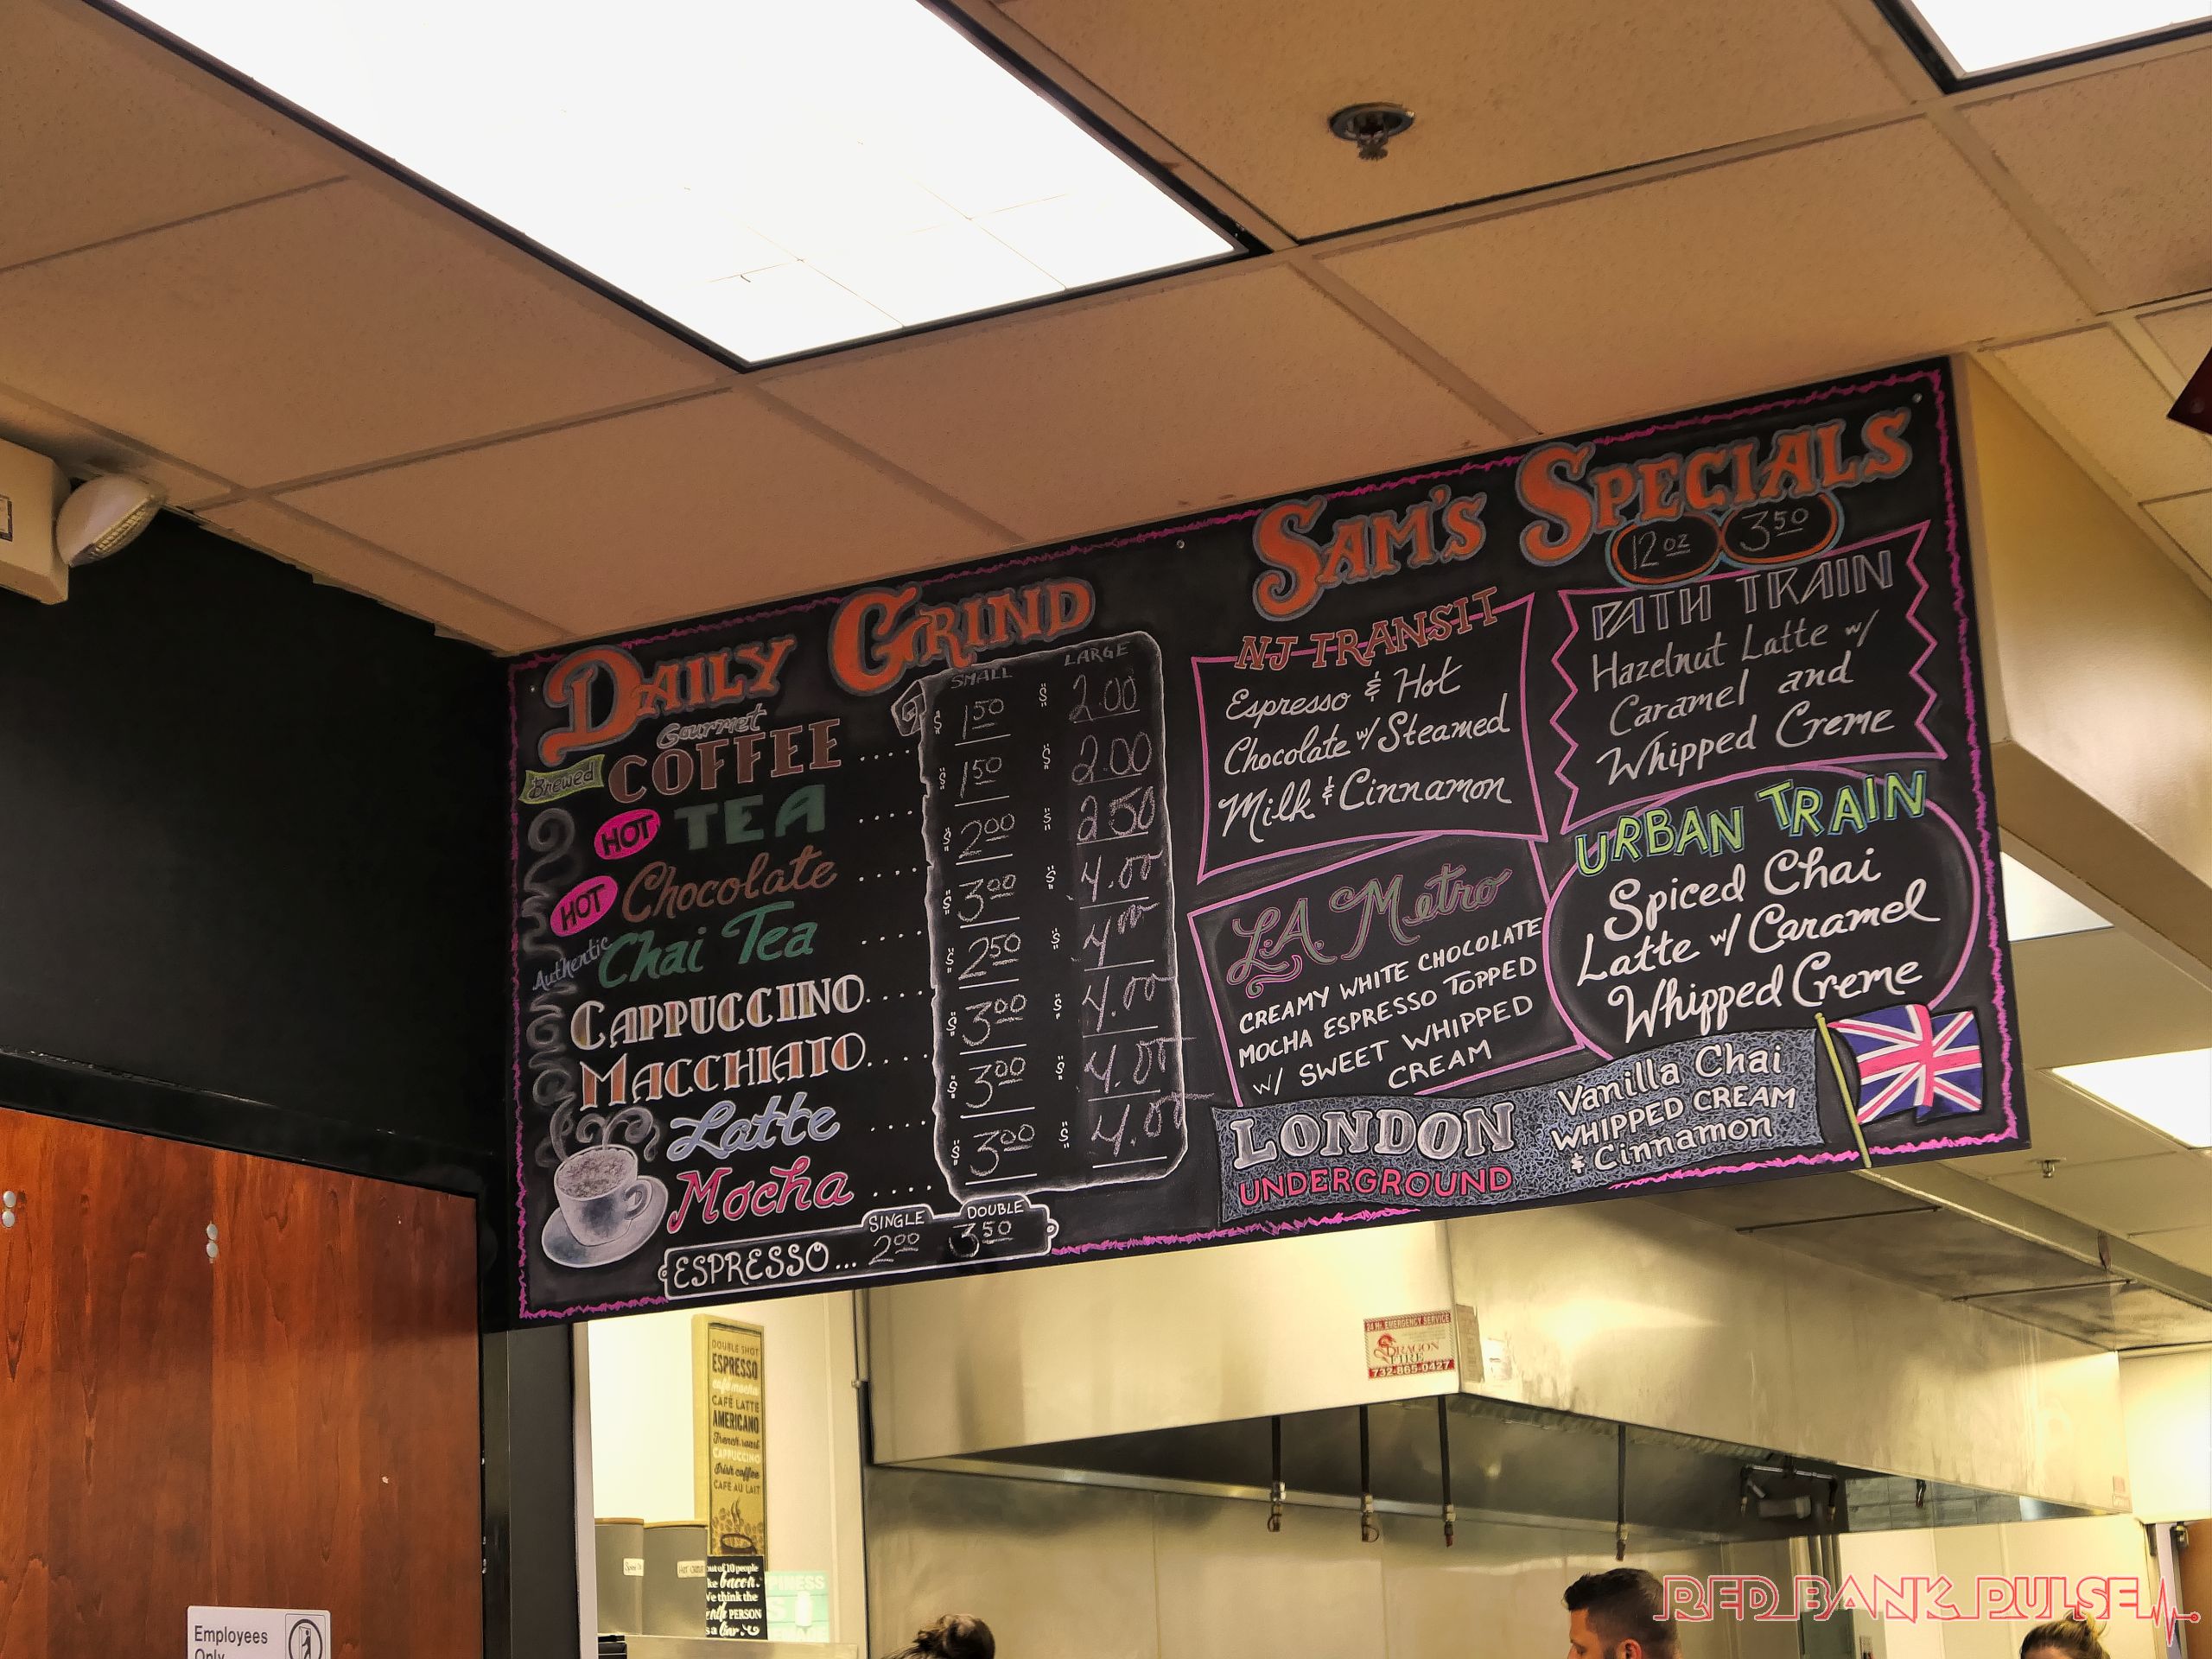 DAILY GRIND
SMALL LARGE
Gourmet
Brewed COFFEE .... $ 1.50 $ 2.00
HOT TEA .... $ 1.50 $ 2.00
HOT Chocolate .... $ 2.00 $ 2.50
Authentic Chai Tea .... $ 3.00 $ 4.00
CAPPUCCINO .... $ 2.50 $ 4.00
MACCHIATO .... $ 3.00 $ 4.00
Latte .... $ 3.00 $ 4.00
Mocha .... $ 3.00 $ 4.00
SINGLE DOUBLE
ESPRESSO... 2.00 3.50
SAM'S SPECIALS
12 oz 3.50
NJ TRANSIT
Espresso & Hot
Chocolate w/ Steamed
Milk & Cinnamon
PATH TRAIN
Hazelnut Latte w/
Caramel and
Whipped Creme
L.A. Metro
CREAMY WHITE CHOCOLATE
MOCHA ESPRESSO TOPPED
W/ SWEET WHIPPED
CREAM
URBAN TRAIN
Spiced Chai
Latte w/ Caramel
Whipped Creme
LONDON
UNDERGROUND
Vanilla Chai
WHIPPED CREAM
& Cinnamon
24 Hr. EMERGENCY SERVICE
DRAGON
FIRE
732-865-0427
DOUBLE SHOT
ESPRESSO
café mocha
CAFÉ LATTE
AMERICANO
French roast
CAPPUCCINO
Irish coffee
CAFÉ AU LAIT
out of 10 people
bacon.
We think the
PERSON
is a liar.
Employees
Only
RED BANK PULSE